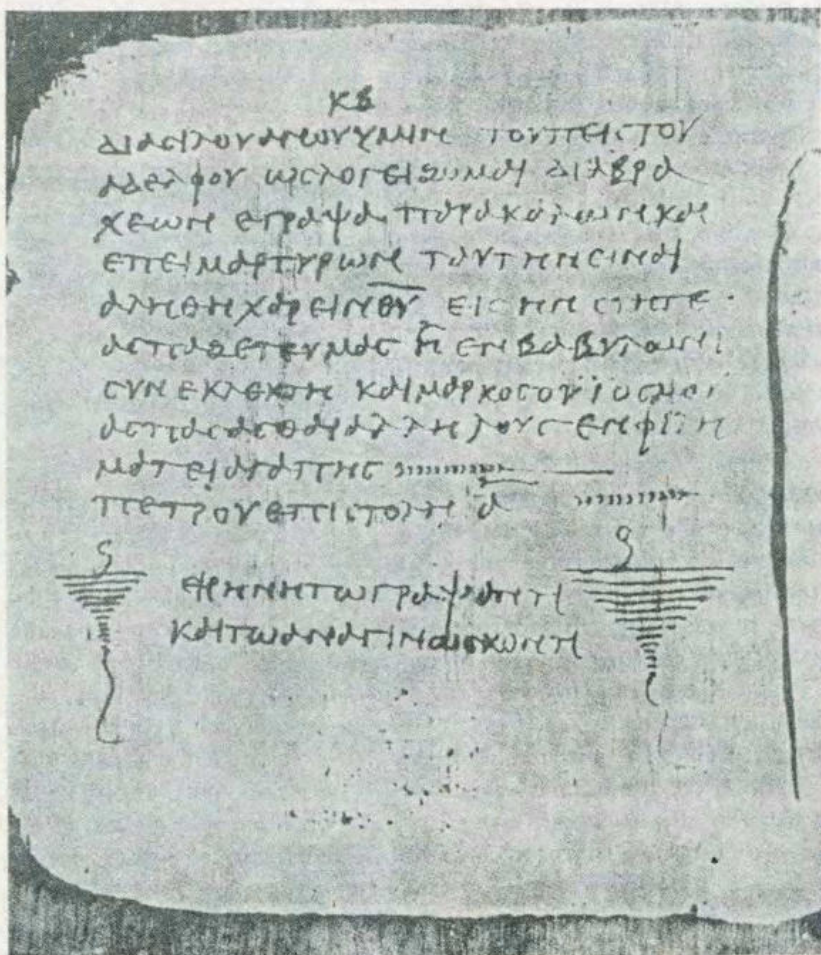 κβ
διασιλουανεωυυμιν τουπειστου
αδελφου ωςλογειζομαι διαβρα
χεων εγραψα παρακαλων και
επειμαρτυρων ταυτην ειναι
αληθη χαρειν θ̅υ̅ εις ην στητε
ασπαζετε υμας η εν βαβυλωνι
συνεκλεκτη και μαρκος ο υιος μου
ασπασασθαι αλληλους εν φιλη
ματει αγαπης
πετρου επιστολη α̅
ειρηνη τω γραψαντι
και τω αναγινωσκωντι